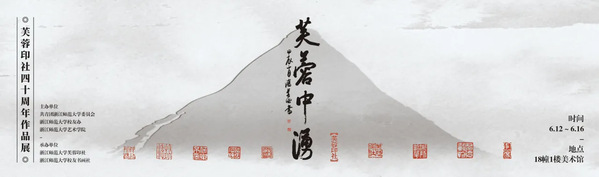 芙蓉印社四十周年作品展
主办单位
共青团浙江师范大学委员会
浙江师范大学校友办
浙江师范大学艺术学院
承办单位
浙江师范大学芙蓉印社
浙江师范大学校友书画社
芙蓉中湧
【芙蓉印社】
时间
6.12 ~ 6.16
地点
18幢1楼美术馆